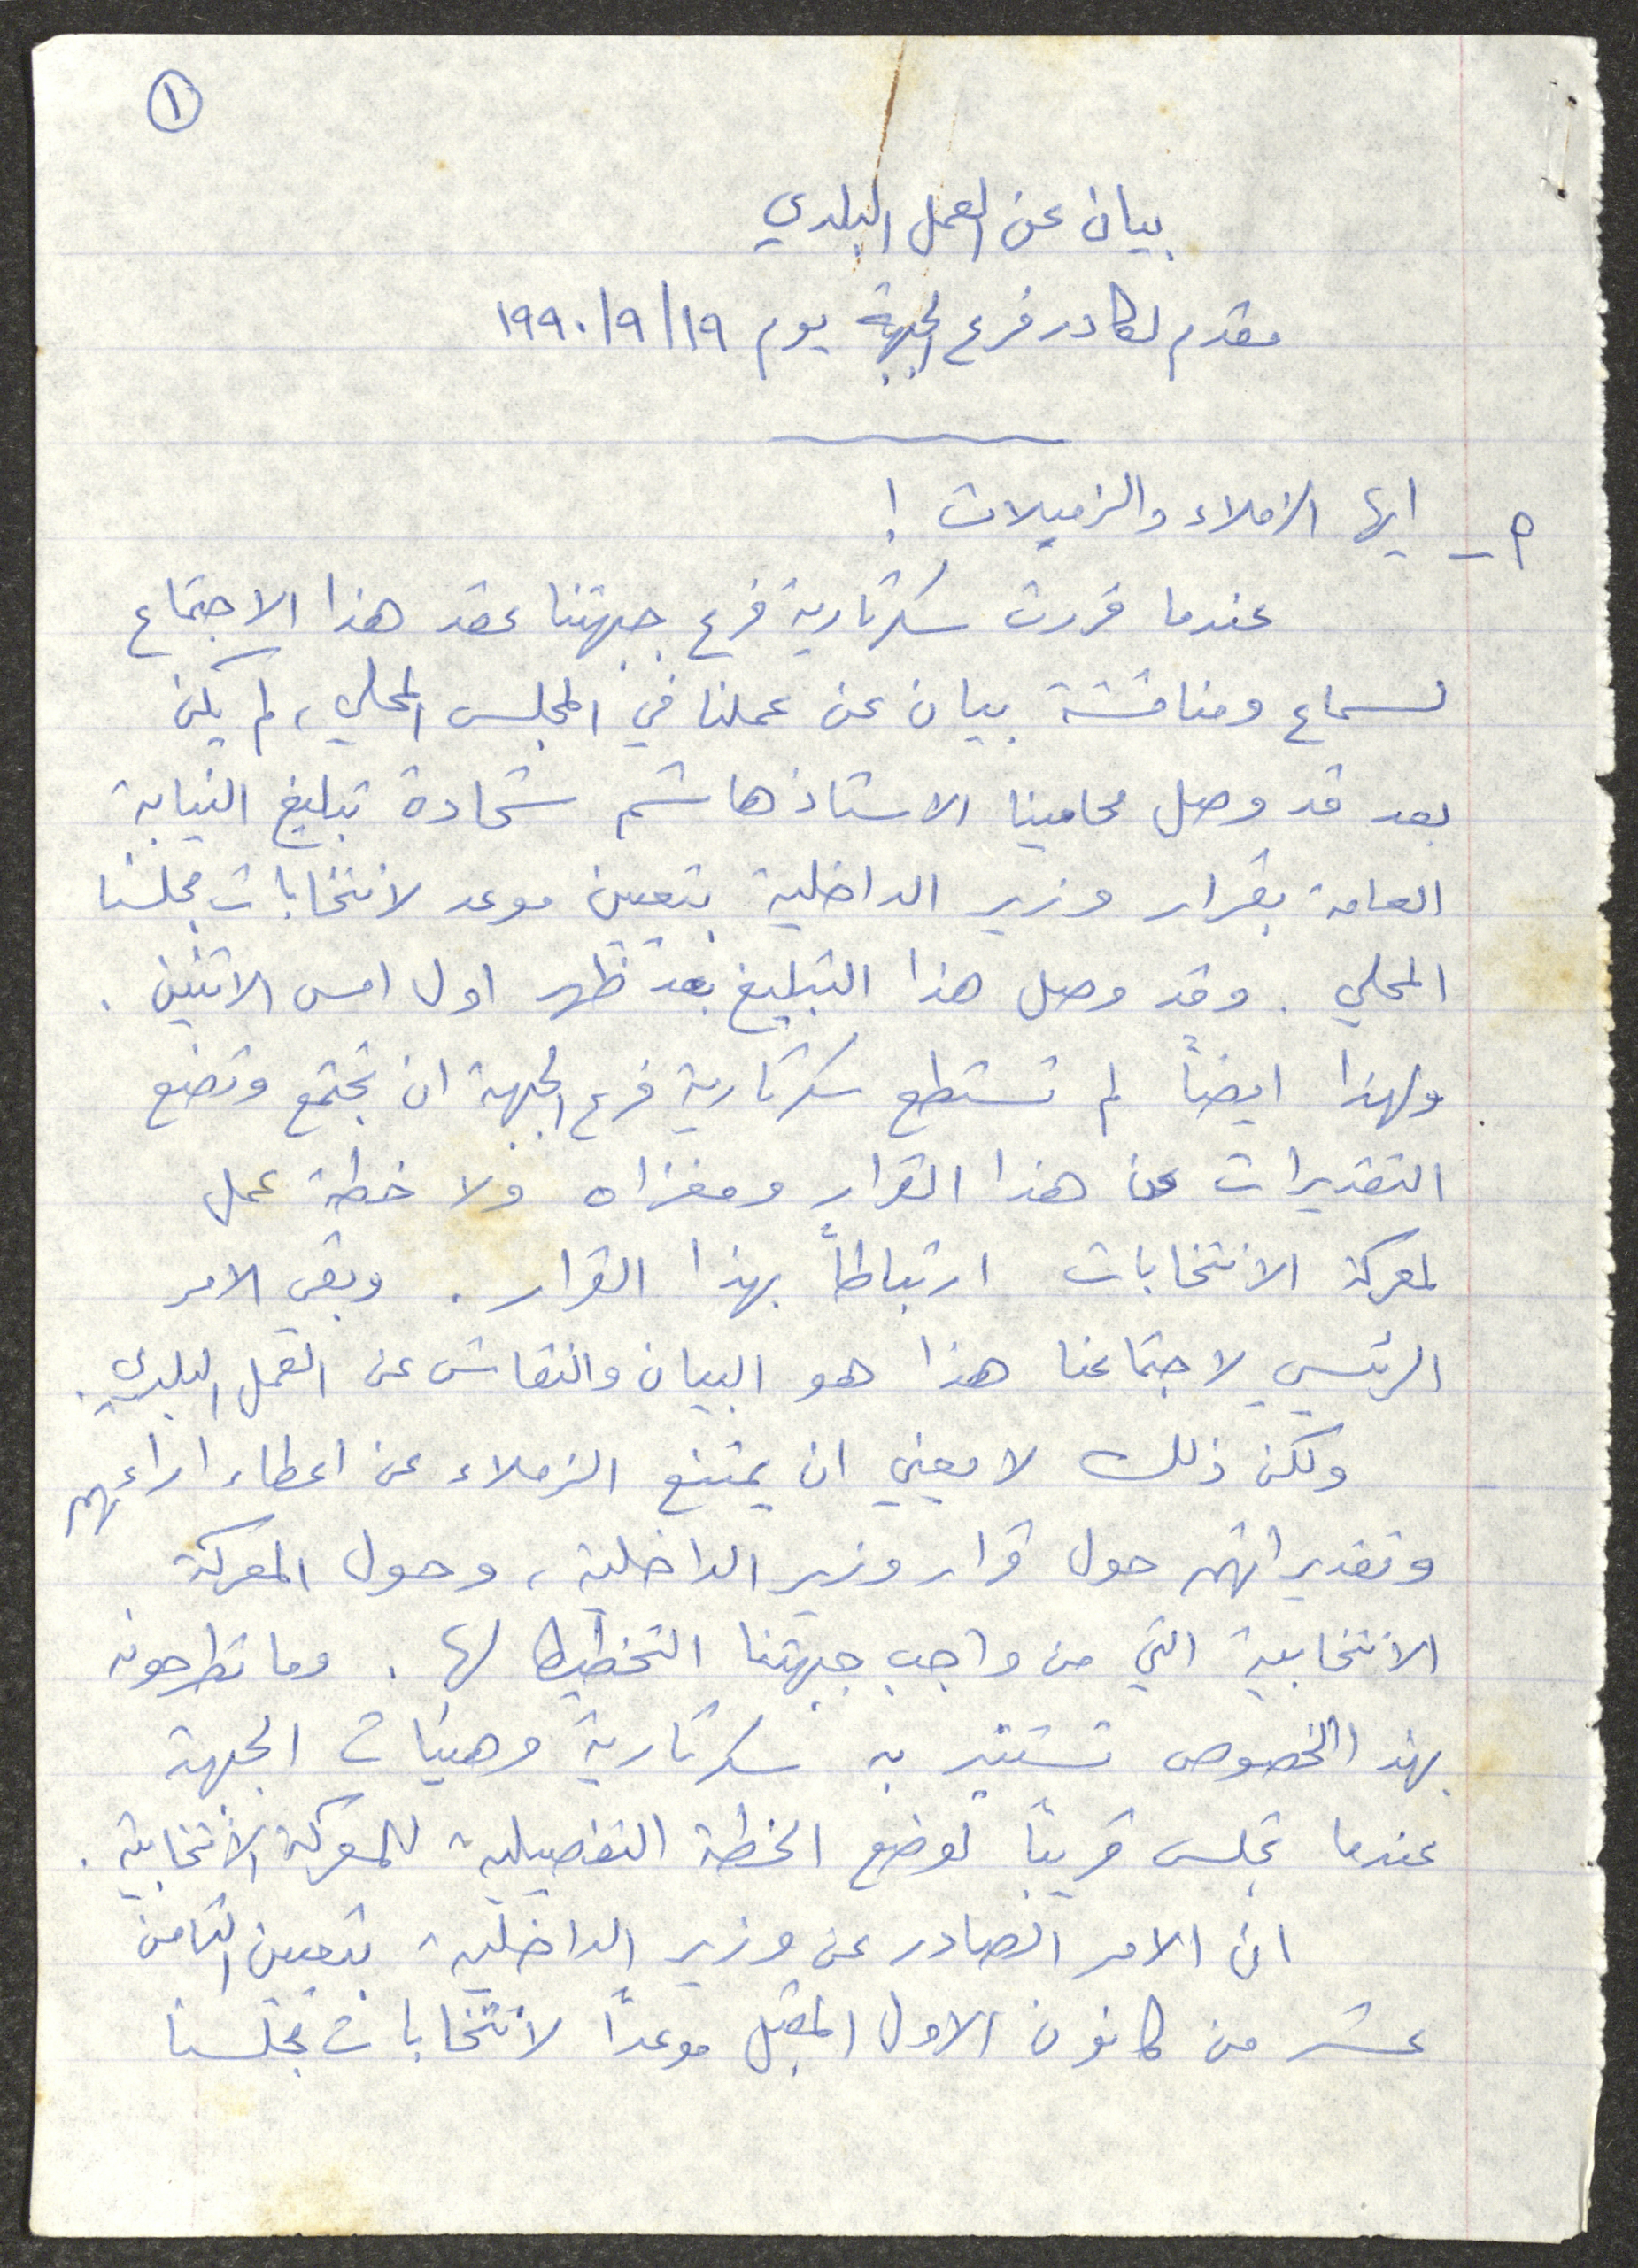 ١
بيان عن العمل البلدي
مقدم لكادر فرع الجبهة يوم ١٩٩٠/٩/١٩
أ - ايها الزملاء والزميلات !
عندما قررت سكرتارية فرع جبهتنا عقد هذا الاجتماع
لسماع ومناقشة بيان عن عملنا في المجلس المحلي، لم يكن
بعد قد وصل محامينا الاستاذ هاشم شحادة تبليغ النيابة
العامة بقرار وزير الداخلية بتعيين موعد لانتخابات مجلسنا
المحلي . وقد وصل هذا التبليغ بعد ظهر اول امس الاثنين .
ولهذا ايضاً لم تستطع سكرتارية فرع الجبهة ان تجتمع وتضع
التقديرات عن هذا القرار ومغزاه ولا خطة عمل
لمعركة الانتخابات ارتباطاً بهذا القرار . وبقي الامر
الرئيسي لاجتماعنا هذا هو البيان والنقاش عن العمل البلدي .
ولكن ذلك لا يعني ان يمتنع الزملاء عن اعطاء اراءهم
وتقديراتهم حول قرار وزير الداخلية، وحول المعركة
الانتخابية التي من واجب جبهتنا التخطيط لها . وما تطرحونه
بهذا الخصوص تستنير به سكرتارية وهيئات الجبهة
عندما تجلس قريباً لوضع الخطة التفصيلية للمعركة الانتخابية .
ان الامر الصادر عن وزير الداخلية بتعيين الثامن
عشر من كانون الاول المقبل موعداً لانتخابات مجلسنا